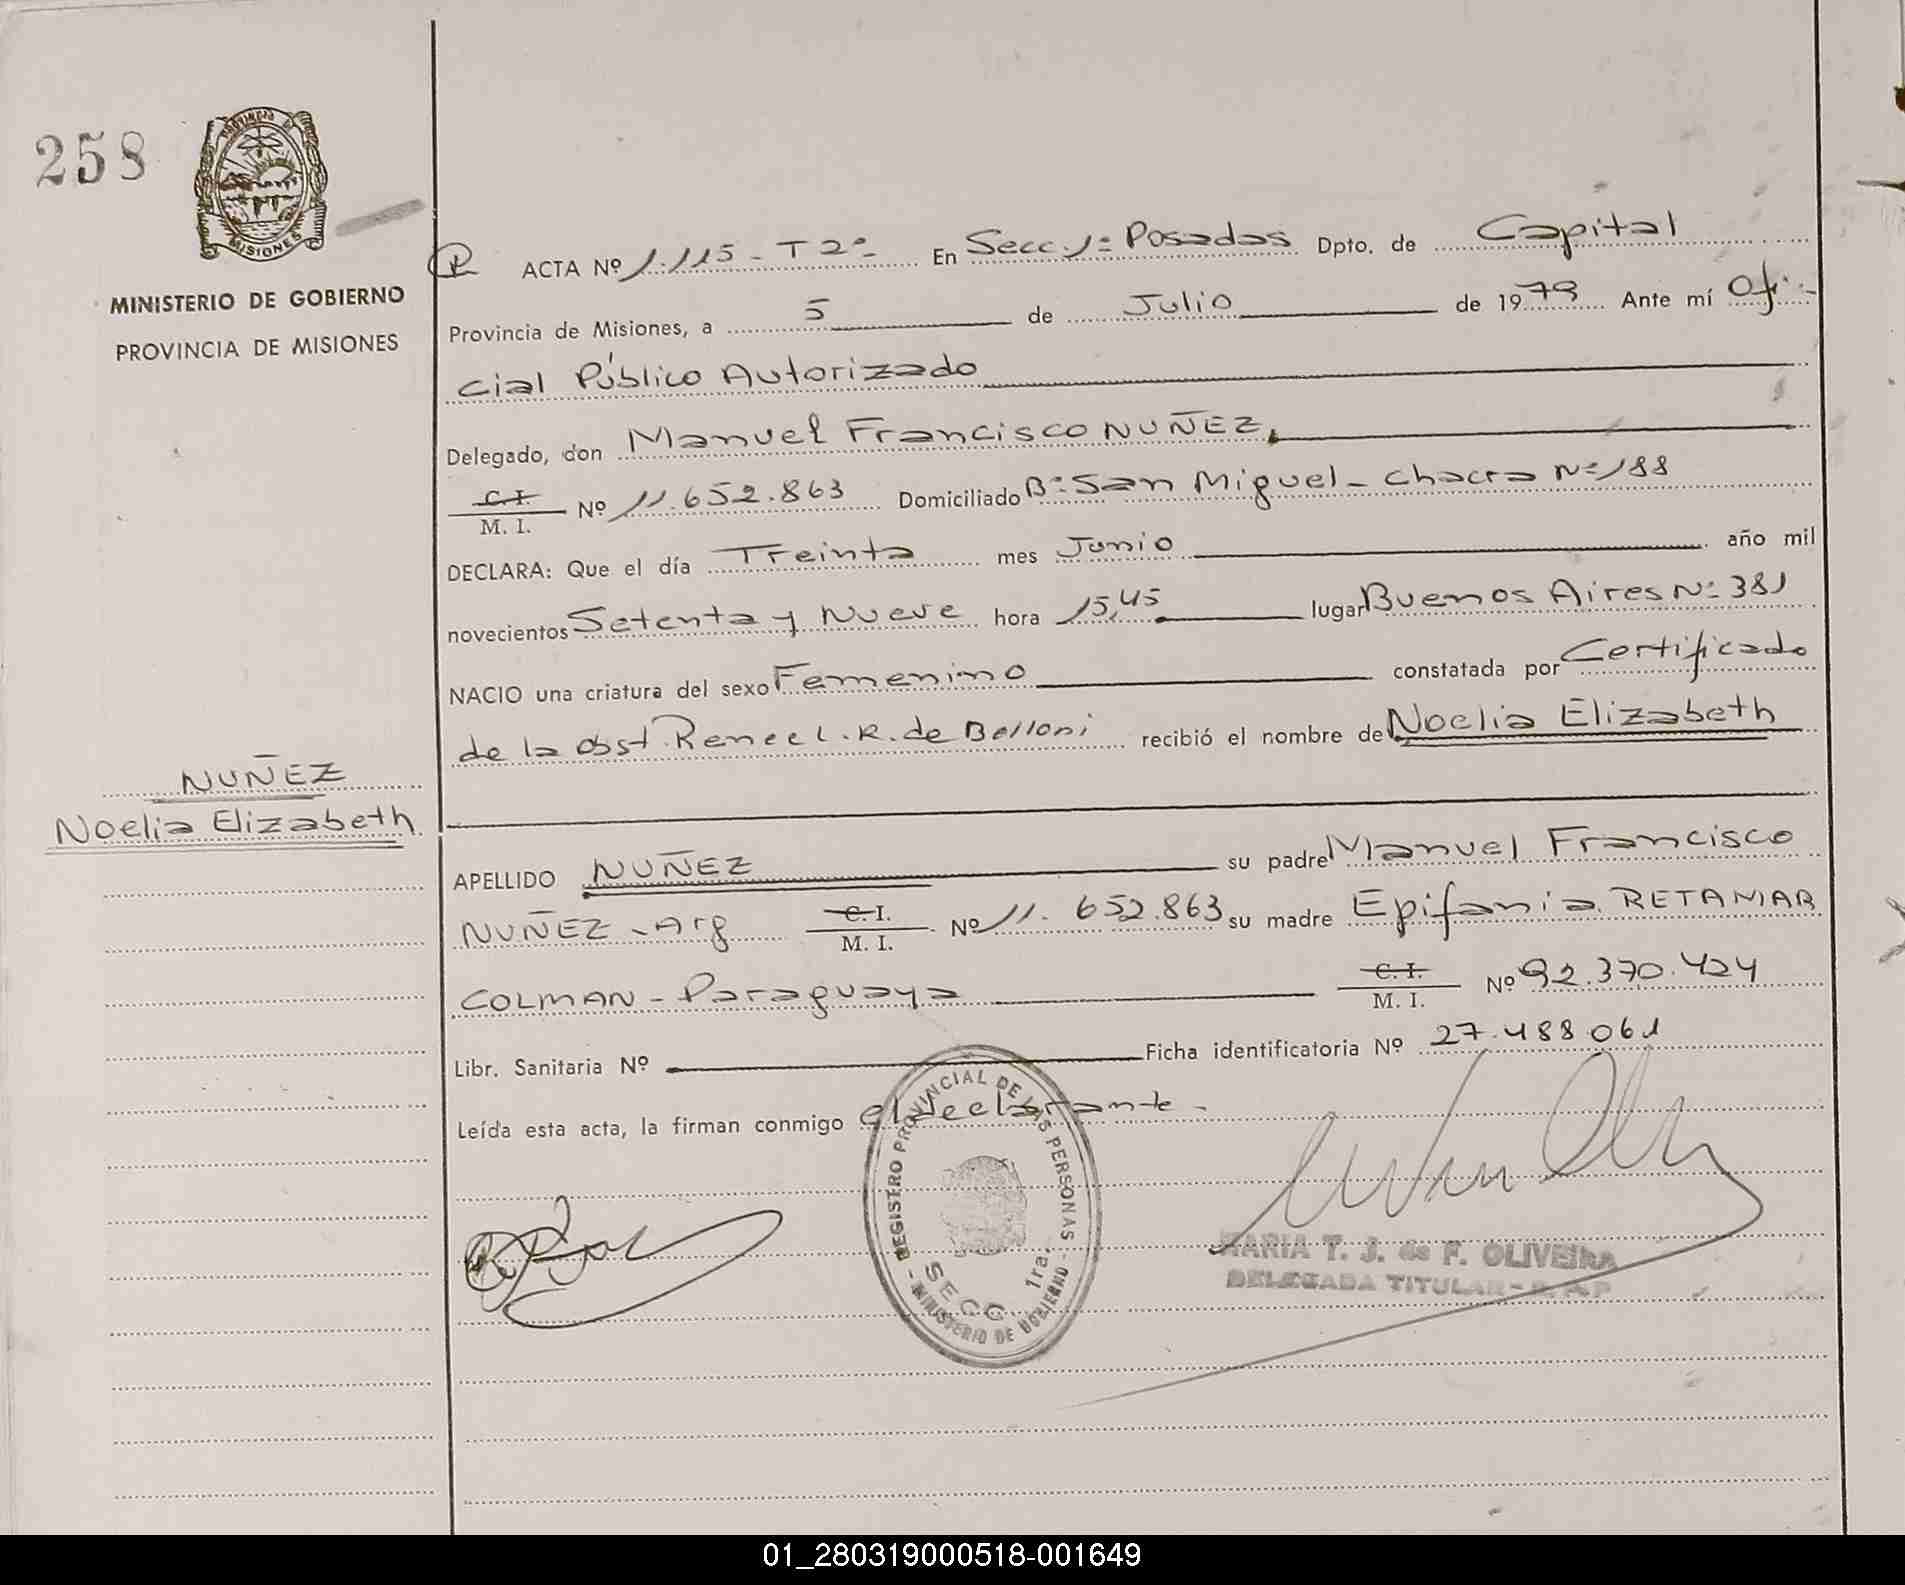 258
PROVINCIA DE
MISIONES
MINISTERIO DE GOBIERNO
PROVINCIA DE MISIONES
ACTA Nº 1.115 - T 2º - En Secc. 1º Posadas Dpto. de Capital
Provincia de Misiones, a 5 de Julio de 1979 Ante mí Ofi-
cial Público Autorizado
Delegado, don Manuel Francisco NUÑEZ,
C.I. / M. I. Nº 11.652.863 Domiciliado Bº San Miguel - Chacra Nº 188
DECLARA: Que el día Treinta mes Junio año mil
novecientos Setenta y Nueve hora 15,45 lugar Buenos Aires Nº 381
NACIO una criatura del sexo Femenino constatada por Certificado
de la Obst. Renee L. R. de Belloni recibió el nombre de Noelia Elizabeth
NUÑEZ
Noelia Elizabeth
APELLIDO NUÑEZ su padre Manuel Francisco
NUÑEZ - Arg C.I. / M. I. Nº 11.652.863 su madre Epifania RETAMAR
COLMAN - Paraguaya C.I. / M. I. Nº 92.370.424
Libr. Sanitaria Nº Ficha identificatoria Nº 27.488.061
Leída esta acta, la firman conmigo el declarante -
REGISTRO PROVINCIAL DE LAS PERSONAS
SECC. 1ra.
MINISTERIO DE GOBIERNO
MARIA T. J. de F. OLIVEIRA
DELEGADA TITULAR -
01_280319000518-001649